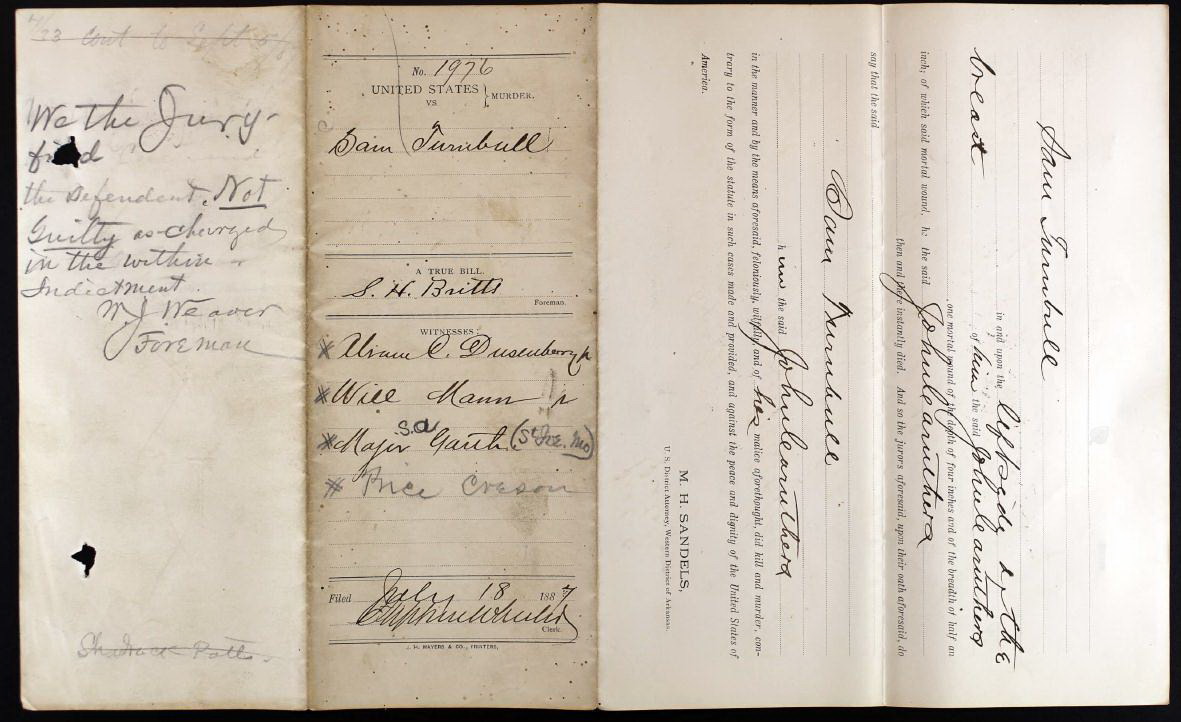 cont to Sept 5/87
We the Jury
find
the Defendent. Not
Guilty as charged
in the within
Indictment.
W J Weaver
Foreman
Shadrack Potts
No. 1976
UNITED STATES
VS
MURDER.
Sam Turnbull
A TRUE BILL.
S. H. Britts
Foreman.
WITNESSES:
C. Dusenberry
Will Mann
S.a
Major Garth (St Joe. Mo)
Price Creson
Filed July 18 1887
Stephen Wheeler
Clerk.
J. H. MAYERS & CO., PRINTERS,
Sam Turnbull
in and upon the left side of the
breast of him the said John
one mortal wound of the depth of four inches and of the breadth of half an
inch; of which said mortal wound, he the said John
then and there instantly died. And so the jurors aforesaid, upon their oath aforesaid, do
say that the said
Sam Turnbull
him the said John
in the manner and by the means aforesaid, feloniously, wilfully, and of his malice aforethought, did kill and murder, con-
trary to the form of the statute in such cases made and provided, and against the peace and dignity of the United States of
America.
M. H. SANDELS,
U. S. District Attorney, Western District of Arkansas.